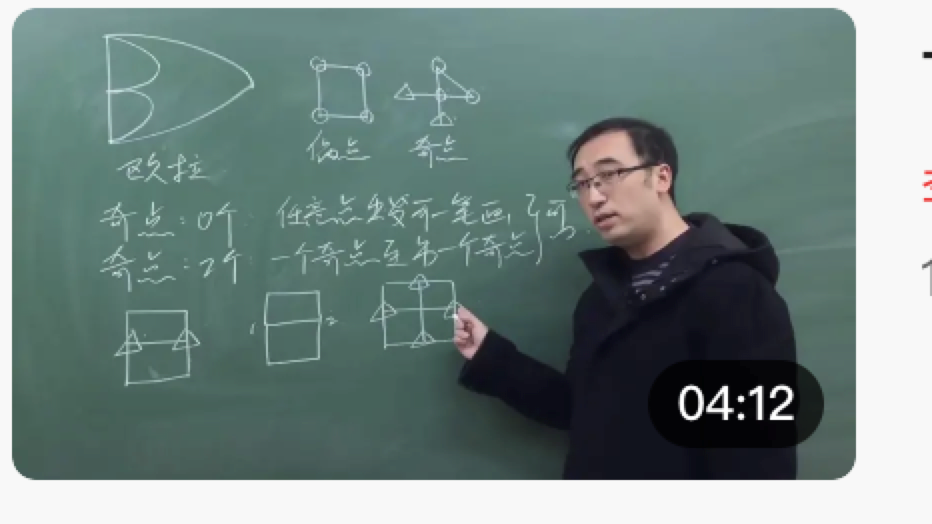 偶点 奇点
欧拉
奇点:0个 任意点出发可一笔画,
奇点:2个 一个奇点至另一个奇点
1 2
04:12